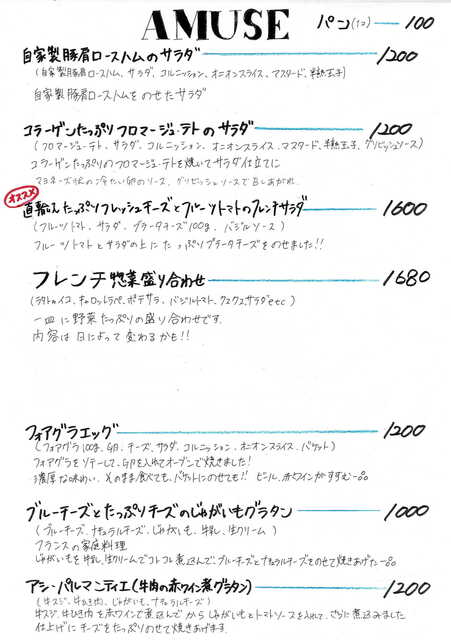 AMUSE
パン(1コ) 100
自家製豚肩ロースハムのサラダ 1200
(自家製豚肩ロースハム、サラダ、コルニッション、オニオンスライス、マスタード、半熟玉子)
自家製豚肩ロースハムをのせたサラダ
コラーゲンたっぷりフロマージュ・テトのサラダ 1200
(フロマージュ・テト、サラダ、コルニッション、オニオンスライス、マスタード、半熟玉子、グリビッシュソース)
コラーゲンたっぷりのフロマージュ・テトを焼いてサラダ仕立てに
マヨネーズ状の冷たい卵のソース、グリビッシュソースで召しあがれ
オススメ
直輸入たっぷりフレッシュチーズとフルーツトマトのフレンチサラダ 1600
(フルーツトマト、サラダ、ブラータチーズ100g、バジルソース)
フルーツトマトとサラダの上にたっぷりブラータチーズをのせました!!
フレンチ惣菜盛り合わせ 1680
(ラタトゥイユ、キャロットラペ、ポテサラ、バジルトマト、クスクスサラダetc)
一皿に野菜たっぷりの盛り合わせです。
内容は日によって変わるかも!!
フォアグラエッグ 1200
(フォアグラ100g、卵、チーズ、サラダ、コルニッション、オニオンスライス、バケット)
フォアグラをソテーして、卵を入れてオーブンで焼きました!
濃厚な味わい、そのまま食べても、バケットにのせても!! ビール、赤ワインがすすむ〜
ブルーチーズとたっぷりチーズのじゃがいもグラタン 1000
(ブルーチーズ、ナチュラルチーズ、じゃがいも、牛乳、生クリーム)
フランスの家庭料理
じゃがいもを牛乳、生クリームでコトコト煮込んで、ブルーチーズとナチュラルチーズをのせて焼きあげた〜
アシ・パルマンティエ(牛肉の赤ワイン煮グラタン) 1200
(牛スジ、牛ひき肉、じゃがいも、ナチュラルチーズ)
牛スジ、牛ひき肉を赤ワインで煮込んでからじゃがいもとトマトソースを入れて、さらに煮込みました
仕上げにチーズをたっぷりのせて焼きあげます。